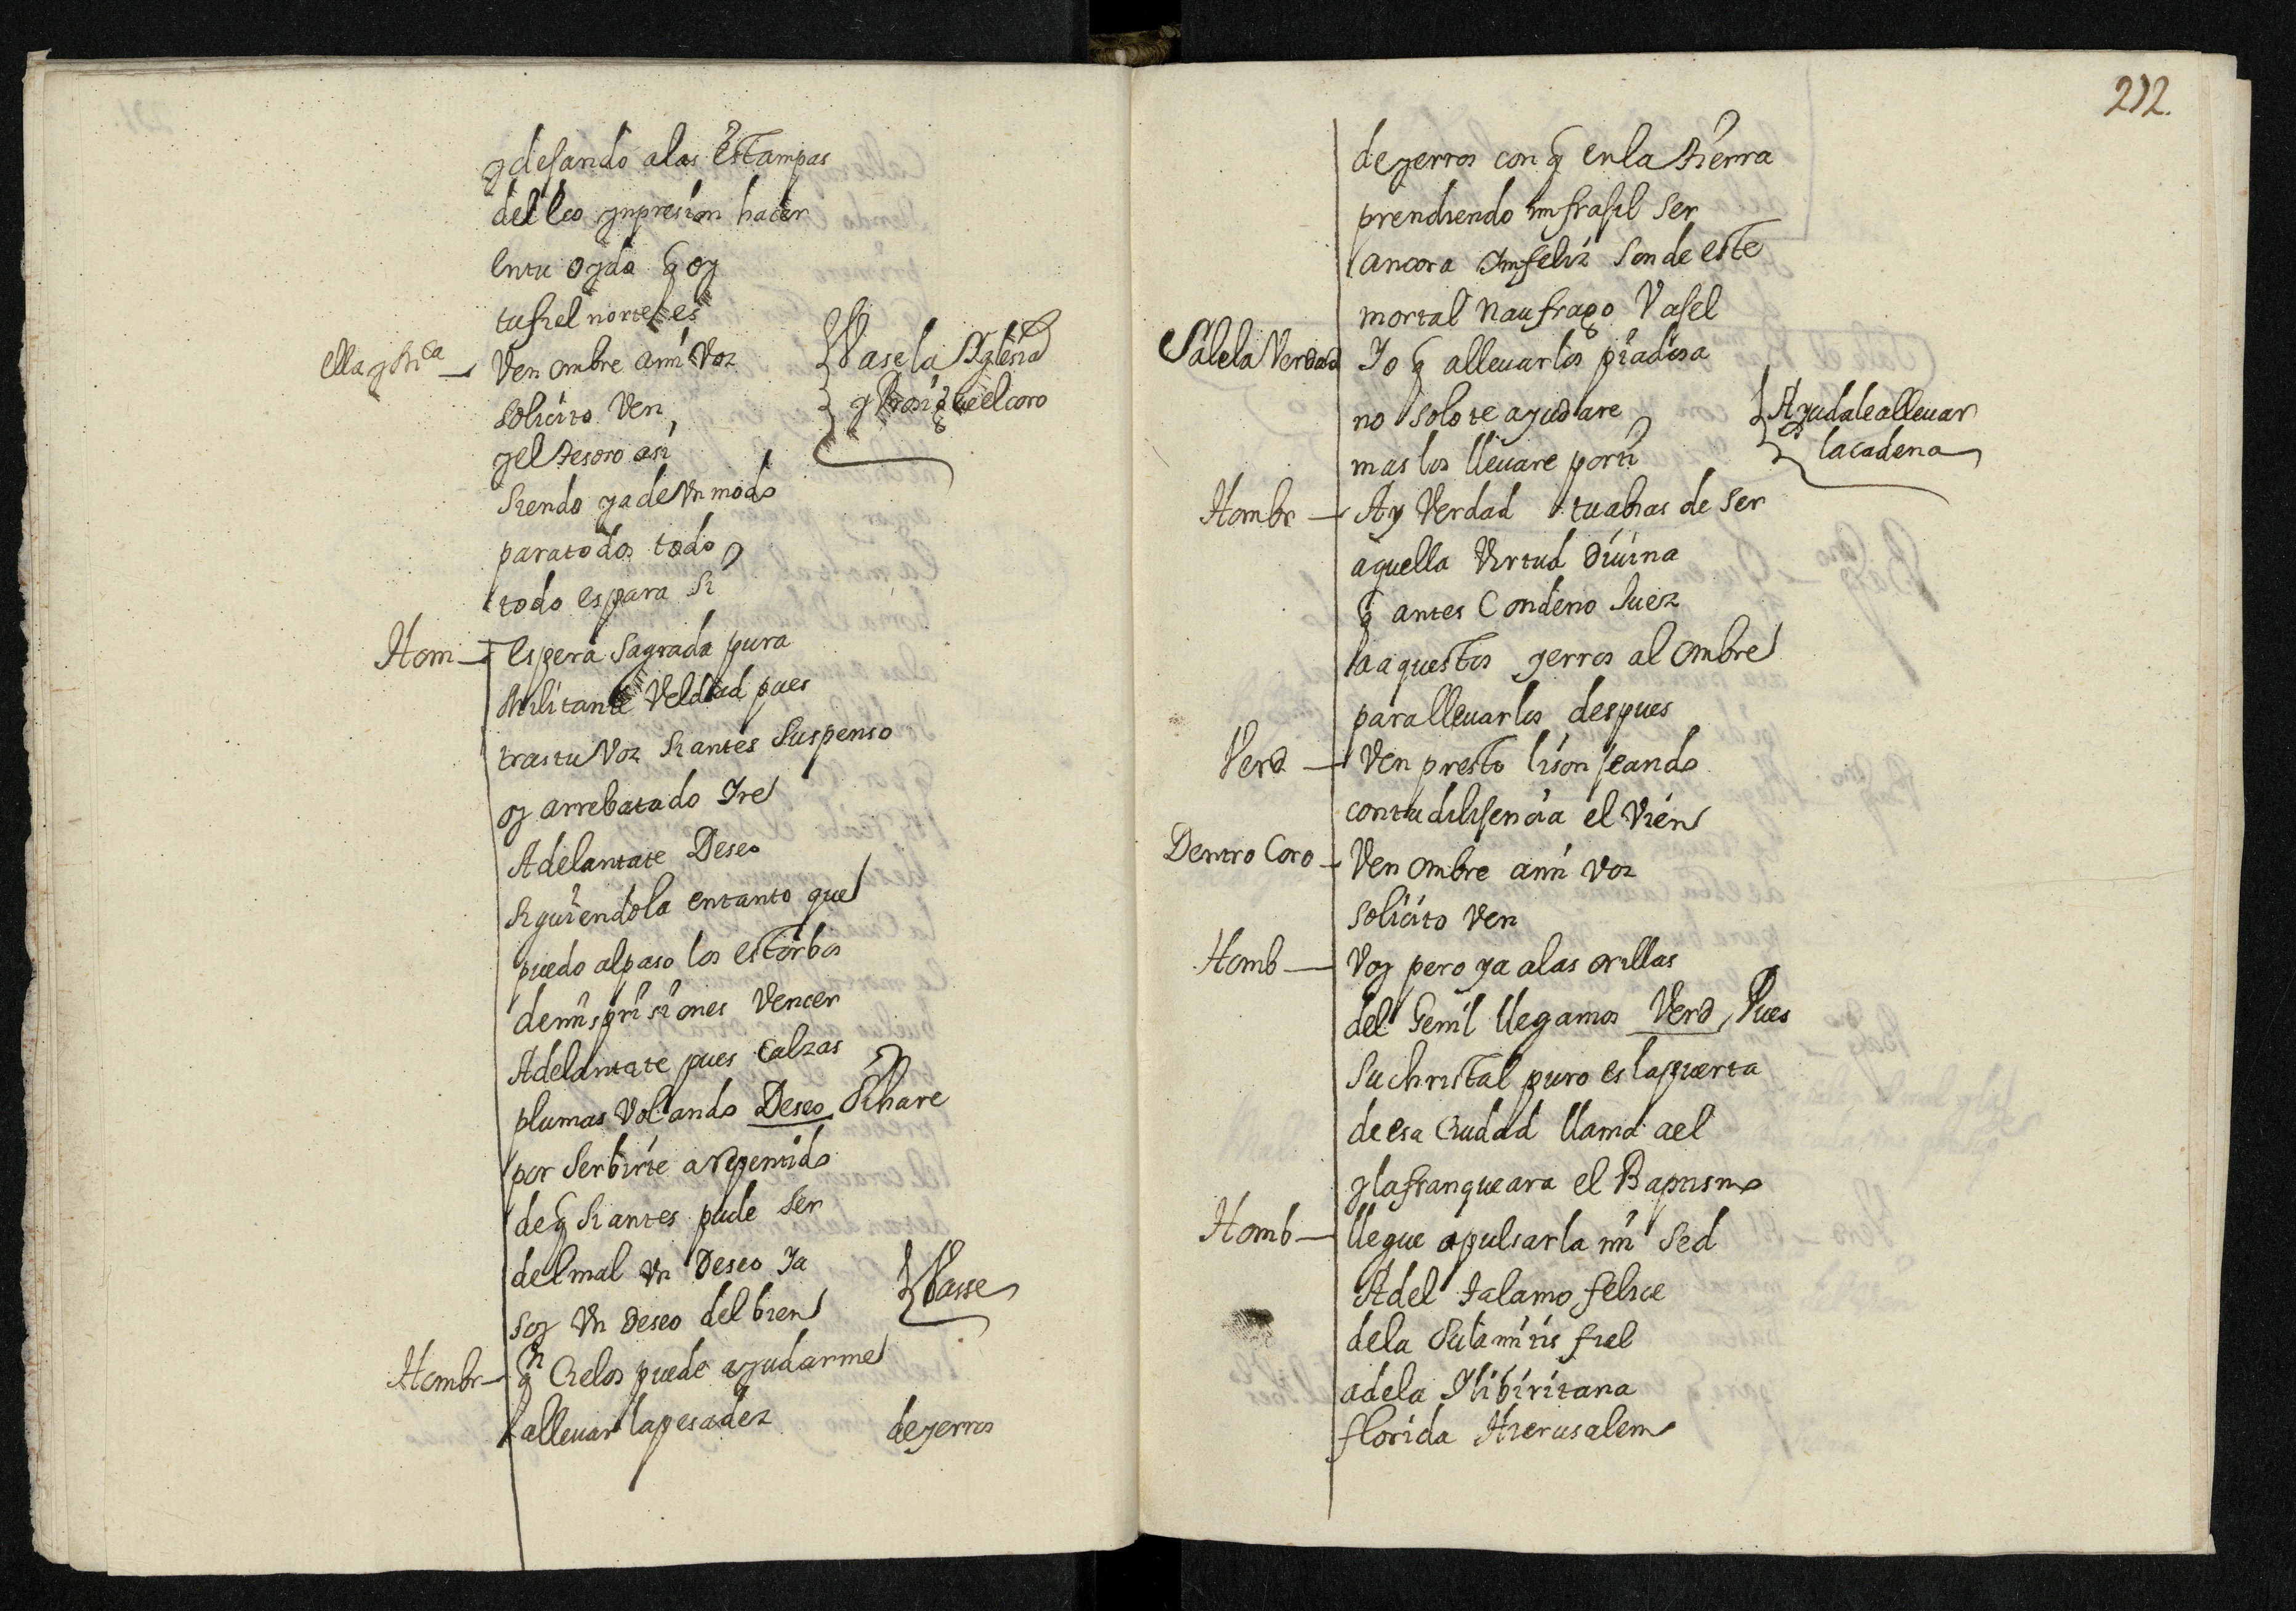 y desando a las Estampas
del leo ynpresion hacer
en tu oydo q̃ oy
tu fiel norte es
Ella y Mca — Ven ombre a mi Voz
Vase la Yglesia
solicito Ven
y prosigue el coro
y el tesoro asi
siendo ya de Vn modo
para todos todo
todo es para si
Hom — Espera Sagrada pura
Militante Veldad pues
tras tu Voz si antes Suspenso
oy arrebatado Ire
Adelantate Deseo
siguiendola en tanto que
puedo al paso los estorbos
de mis prisiones Vencer
Adelantate pues Calzas
plumas Volando Deseo Si hare
por serbirte arepentido
de q̃ si antes pude ser
del mal Vn Deseo Ya
soy Vn deseo del bien
Vasse
Hombr — qn Cielos puede ayudarme
a lleuar la pesadez
de yerros
212.
de yerros con q̃ en la tierra
prendiendo mi frasil ser
ancora Ynfeliz son de este
mortal naufrago Vasel
Sale la Verdad Yo q̃ a lleuarlos piadosa
no solo te ayudare
Ayudale a lleuar
mas los lleuare por ti
la cadena
Hombr — Ay Verdad tu abias de ser
aquella Virtud diuina
q̃ antes Condeno Juez
a aquestos yerros al ombre
para lleuarlos despues
Verd — Ven presto lisonseando
con tu dilisencia el Vien
Dentro Coro — Ven ombre a mi voz
solicito Ven
Homb — Voy pero ya a las orillas
del Genil llegamos Verd, Pues
su christal puro es la puerta
de esa Ciudad llama a el
y la franqueara el Baptismo
Homb — llegue a pulsarla mi sed
A del talamo felice
de la Sulamitis fiel
a de la Ylibiritana
florida Hierusalem